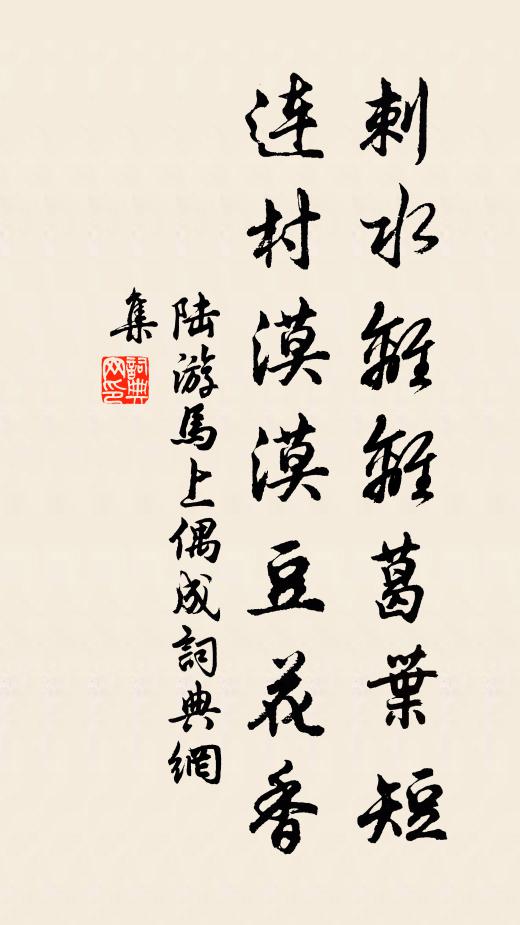 刺水離離葛葉短
連村漠漠豆花香
陆游馬上偶成詞典網
集
詞典
网印